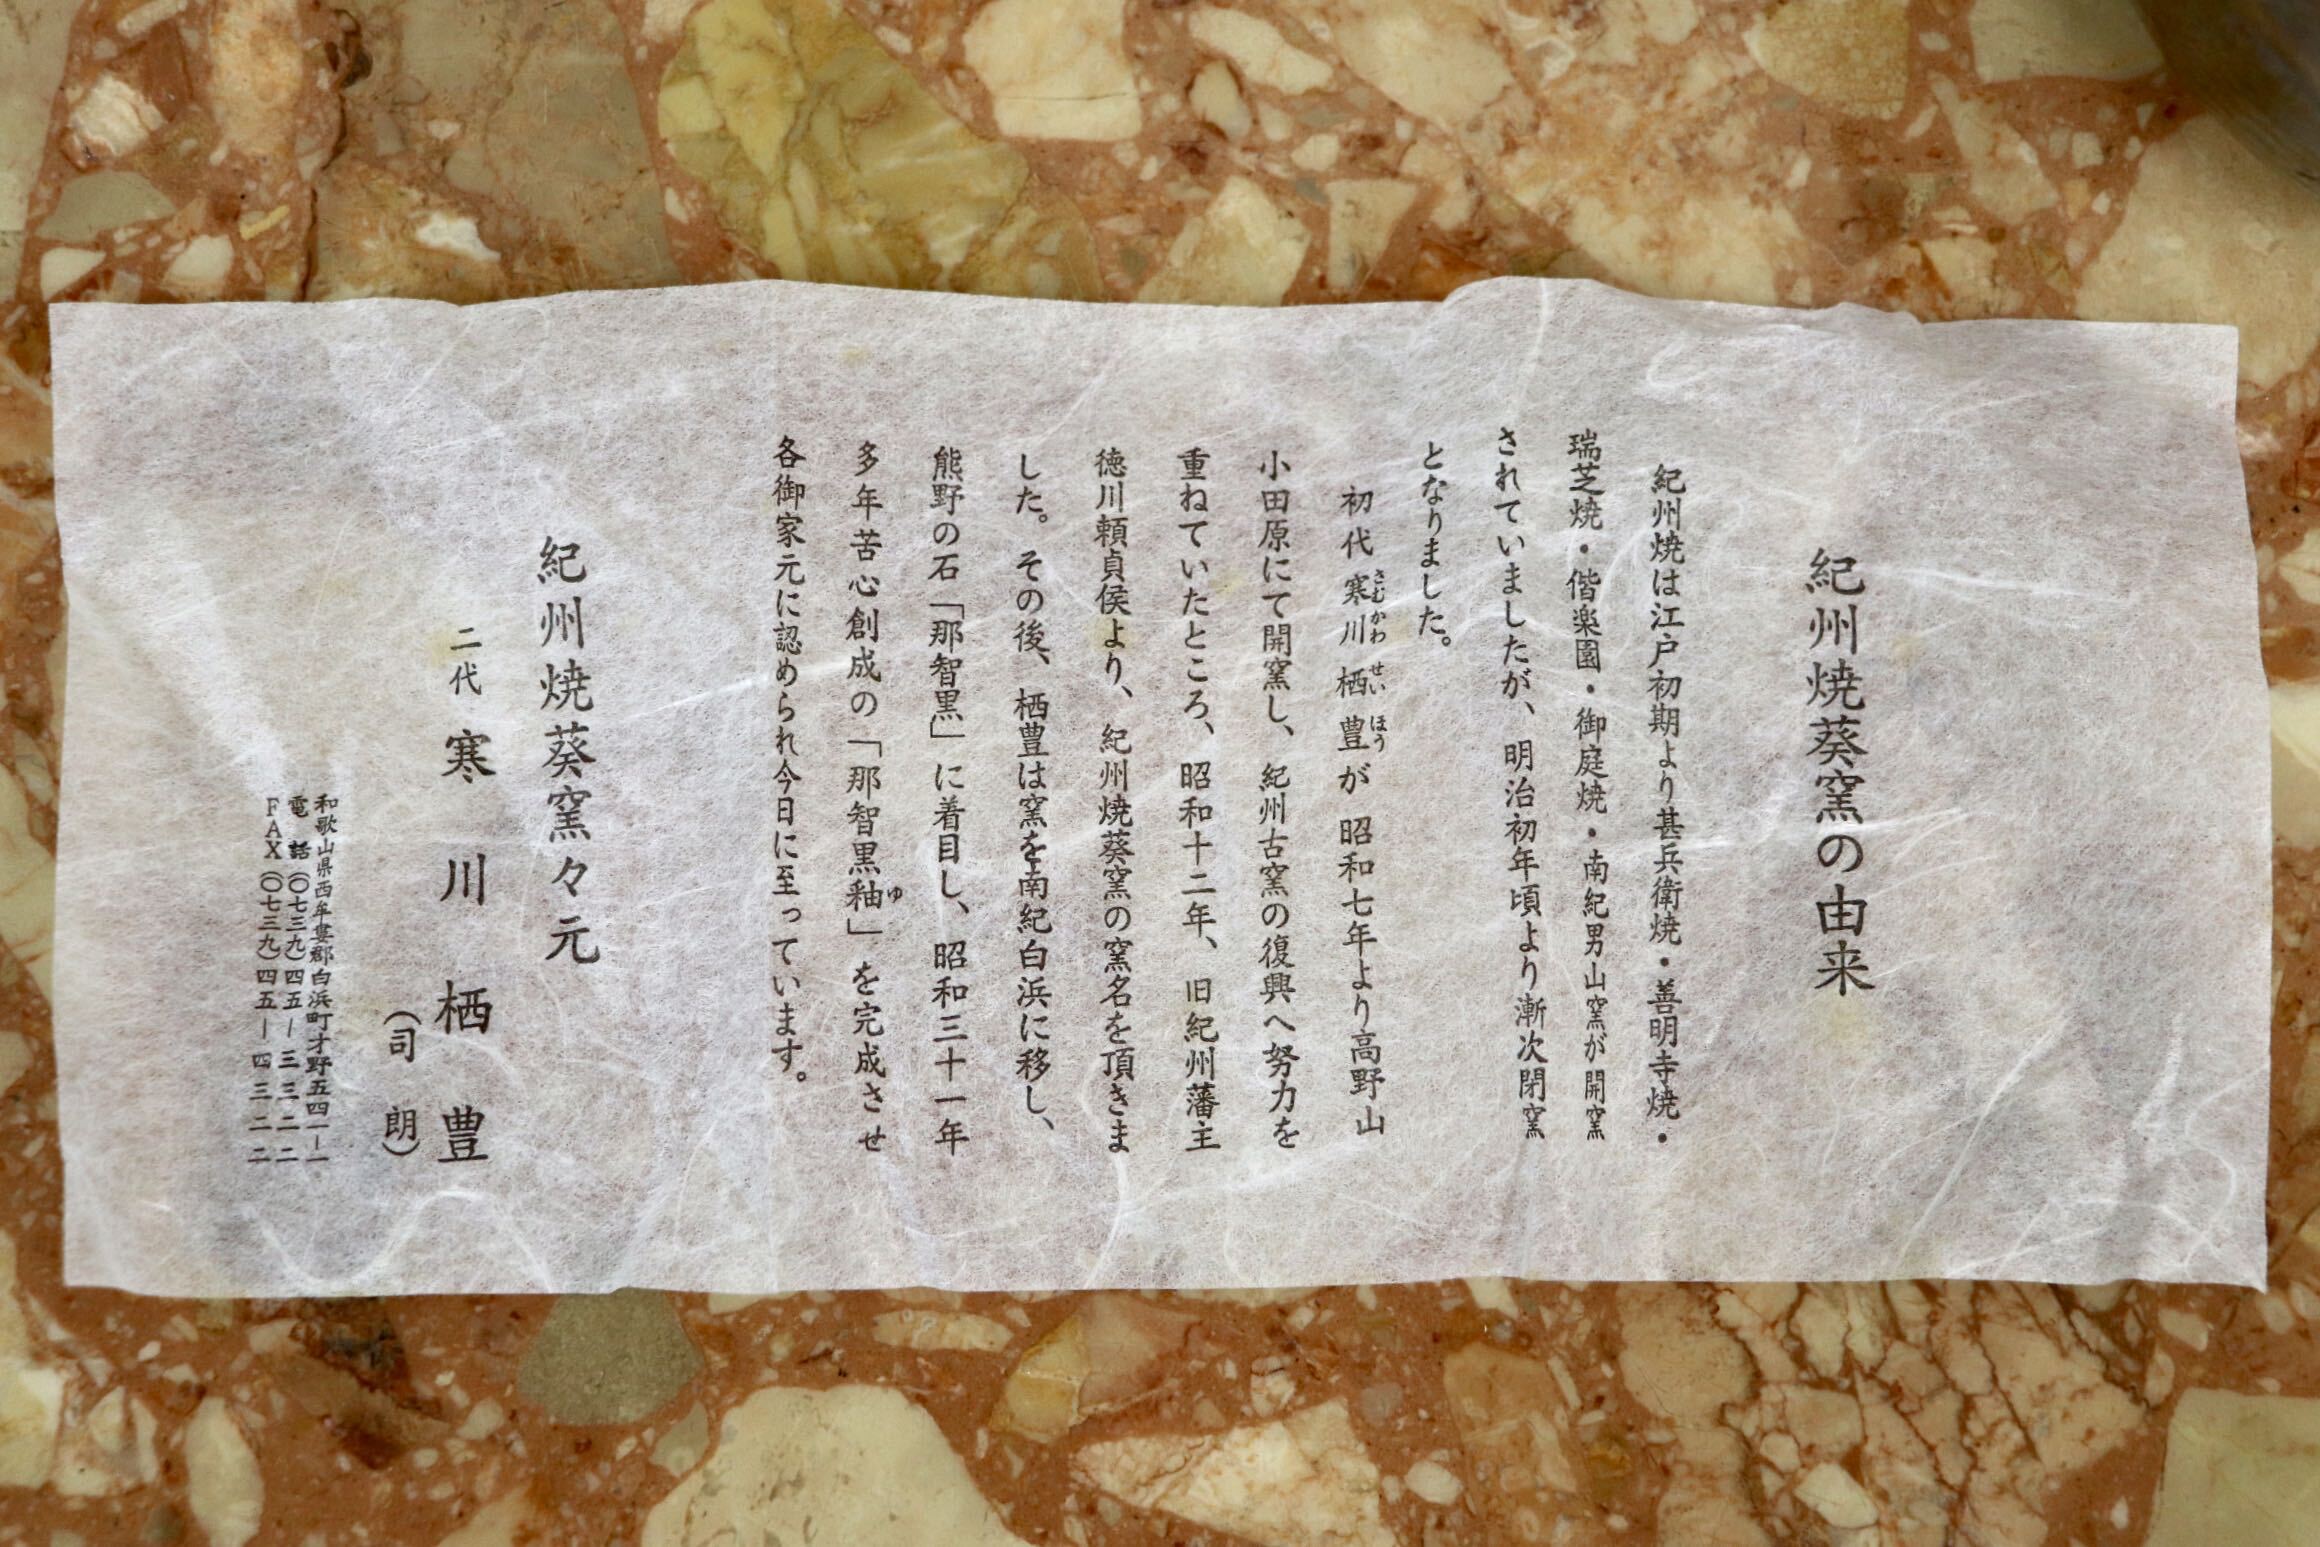 紀州焼葵窯の由来
紀州焼は江戸初期より甚兵衛焼・善明寺焼・
瑞芝焼・偕楽園・御庭焼・南紀男山窯が開窯
されていましたが、明治初年頃より漸次閉窯
となりました。
初代寒川栖豊が昭和七年より高野山
さむかわせいほう
小田原にて開窯し、紀州古窯の復興へ努力を
重ねていたところ、昭和十二年、旧紀州藩主
徳川頼貞侯より、紀州焼葵窯の窯名を頂きま
した。その後、栖豊は窯を南紀白浜に移し、
熊野の石「那智黒」に着目し、昭和三十一年
多年苦心創成の「那智黒釉」を完成させ
ゆ
各御家元に認められ今日に至っています。
紀州焼葵窯々元
二代 寒川栖豊
（司朗）
和歌山県西牟婁郡白浜町才野一五四一−一
電話（〇七三九）四五−三三二二
FAX（〇七三九）四五−四三二二